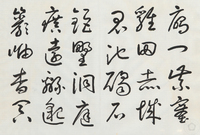 雁門紫塞
雞田赤城
昆池碣石
鉅野洞庭
曠遠緜邈
巖岫杳冥